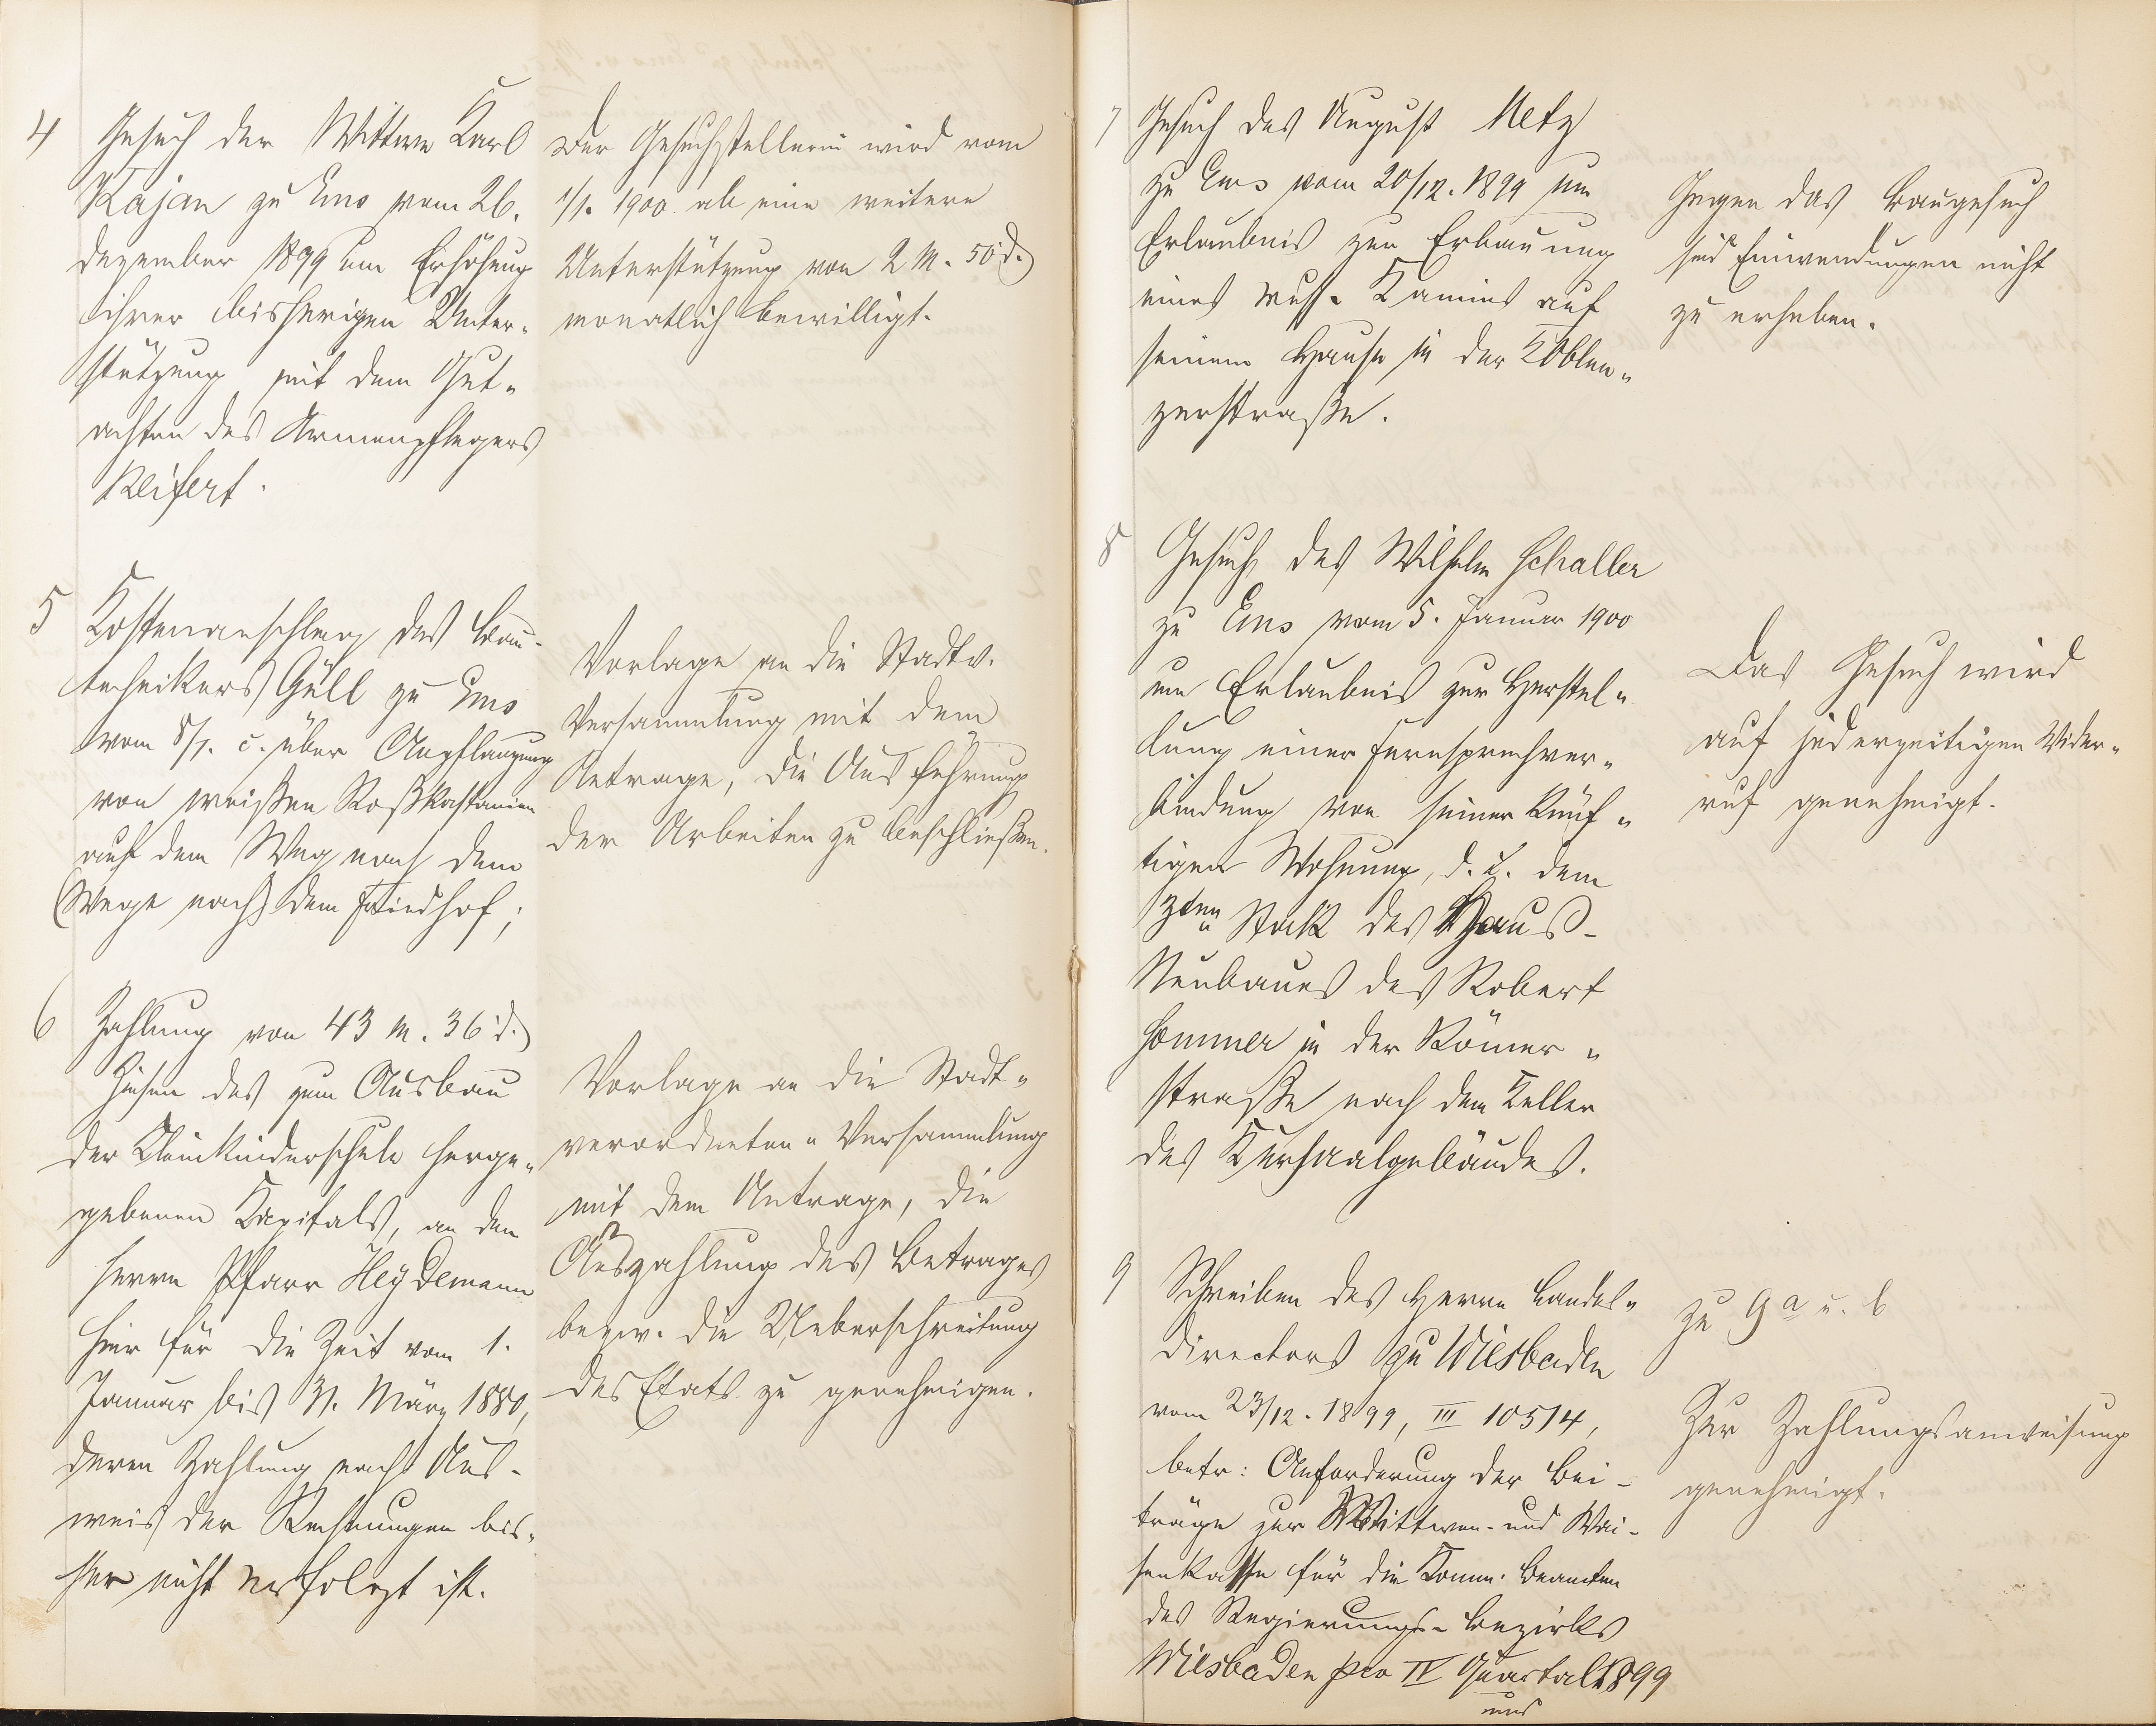 4
Gesuch der Wittwe Karl
Kajan zu Ems vom 26.
Dezember 1899 um Erhöhung
ihrer bisherigen Unter-
stützung mit dem Gut-
achten des Armenpflegers
Reifert.
Der Gesuchstellerin wird vom
1/1. 1900 ab eine weitere
Unterstützung von 2 M. 50 d.
monatlich bewilligt.
5
Kostenanschlag des Bau-
technikers Güll zu Ems
vom 8/1. c. über Anpflanzung
von weißen Roßkastanien
auf dem Weg nach dem
(Wege nach) dem Friedhof;
Vorlage an die Stadtv.
Versammlung mit dem
Antrage, die Ausführung
der Arbeiten zu beschließen.
6
Zahlung von 43 M. 36 d.
Zinsen des zum Ausbau
der Kleinkinderschule herge-
gebenen Kapitals, an den
Herrn Pfarr Heydemann
hier für die Zeit vom 1.
Januar bis 31. März 1880,
deren Zahlung nach Aus-
weis der Rechnungen bis-
her nicht erfolgt ist.
Vorlage an die Stadt-
verordneten-Versammlung
mit dem Antrage, die
Auszahlung des Betrages
bezw. die Ueberschreitung
des Etats zu genehmigen.
7
Gesuch des August Metz
zu Ems vom 20/12. 1899 um
Erlaubnis zur Erbauung
eines russ. Kamins auf
seinem Hause in der Koblen-
zerstraße.
Gegen das Baugesuch
sind Einwendungen nicht
zu erheben.
8
Gesuch des Wilhelm Schaller
zu Ems vom 5. Januar 1900
um Erlaubnis zur Herstel-
lung einer Fernsprechver-
bindung von seiner künf-
tigen Wohnung, d. i. dem
2ten Stock des Haus-
Neubaues des Robert
Sommer in der Römer-
straße nach dem Keller
des Kursaalgebäudes.
Das Gesuch wird
auf jederzeitigen Wider-
ruf genehmigt.
9
Schreiben des Herrn Landes-
directors zu Wiesbaden
vom 23/12. 1899, III 10514,
betr: Anforderung der Bei-
träge zur Wittwen- und Wai-
senkasse für die Komm. Beamten
des Regierungs-Bezirks
Wiesbaden pro IV Quartal 1899
und
zu 9 a u. b
Zur Zahlungsanweisung
genehmigt.